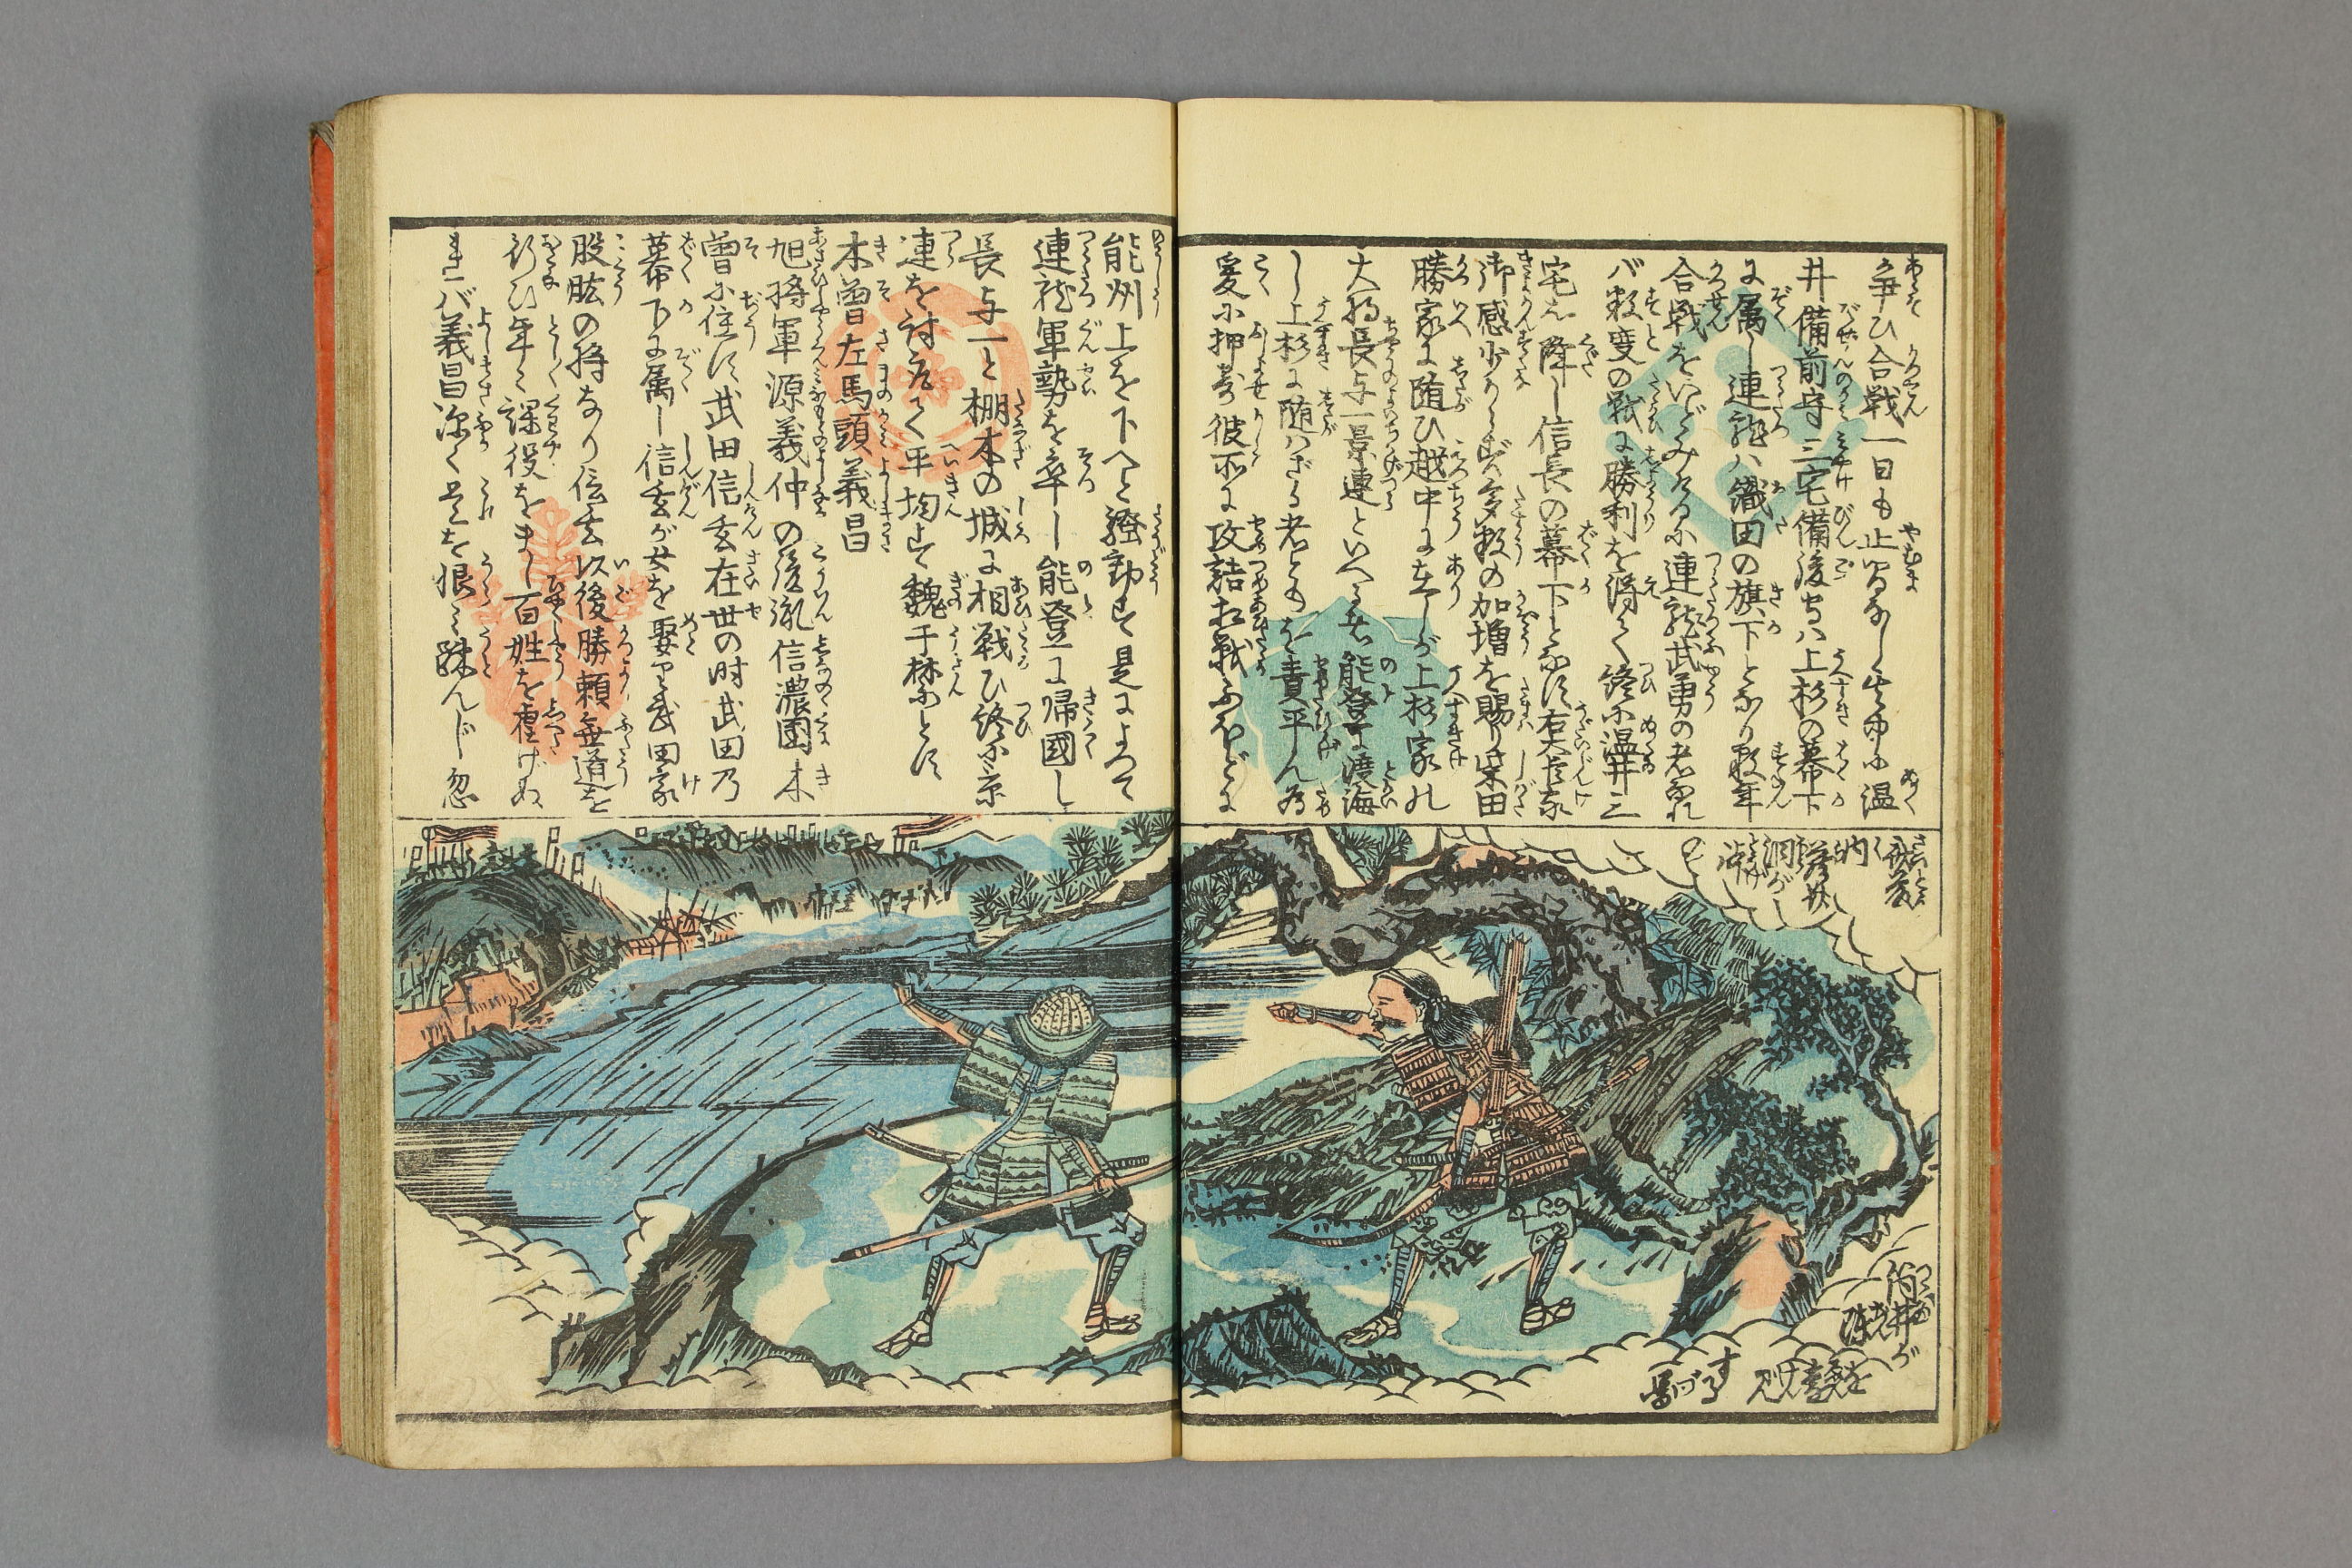 争ひ合戦一日も止間なし其中に温
井備前守三宅備後守ハ上杉の幕下
に属し連龍ハ織田の旗下となり数年
合戦をいどみけるに連龍武勇の者なれ
バ数度の戦に勝利を得て終に温井三
宅を降し信長の幕下となす右大臣家
御感少からず多数の加増を賜り柴田
勝家に随ひ越中に在しが上杉家の
大将長与一景連といへる者能登へ渡海
し上杉に随ハざる者どもを責平ん為
爰に押寄彼所に攻詰相戦ふほどに
能州上を下へと騒動す是によつて
連龍軍勢を卒し能登に帰國し
長与一と棚木の城に相戦ひ終に景
連を討取て平均す魏于禁とす
木曽左馬頭義昌
旭将軍源義仲の後胤信濃国木
曽に住す武田信玄在世の時武田乃
幕下に属し信玄が女を娶り武田家
股肱の将なり信玄以後勝頼無道を
行ひ年々課役をまし百姓を虐げぬ
れバ義昌深く是を恨み疎んじ忽
斎藤
内蔵
洞が
峠
の
筒井が
陣